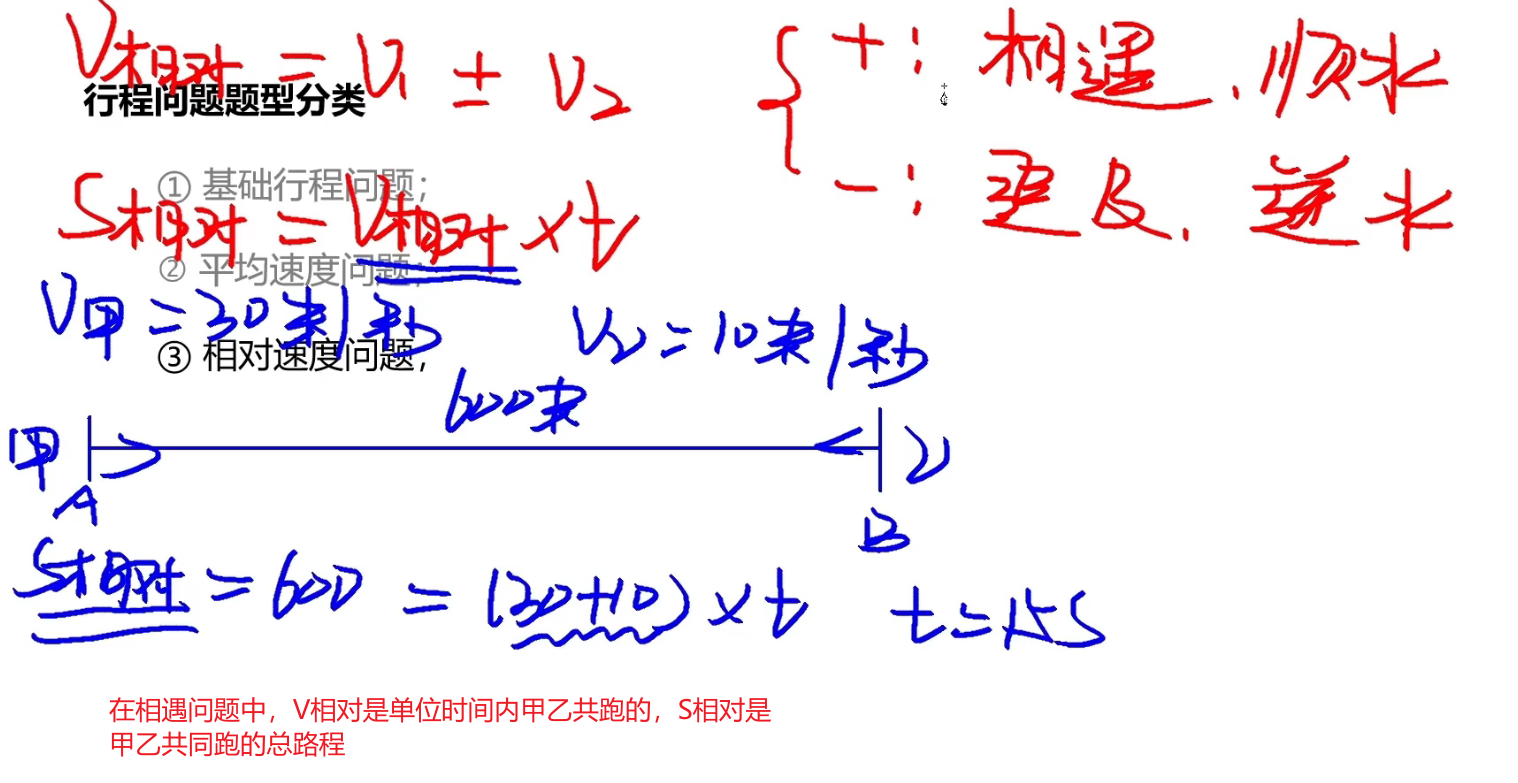 V相对 = V₁ ± V₂
{ +: 相遇、顺水
-: 追及、逆水
行程问题题型分类
① 基础行程问题;
S相对 = V相对 × t
② 平均速度问题;
V甲 = 30米/秒 V乙 = 10米/秒
③ 相对速度问题;
600米
甲 乙
A B
S相对 = 600 = (30+10) × t t = 15s
在相遇问题中，V相对是单位时间内甲乙共跑的，S相对是
甲乙共同跑的总路程